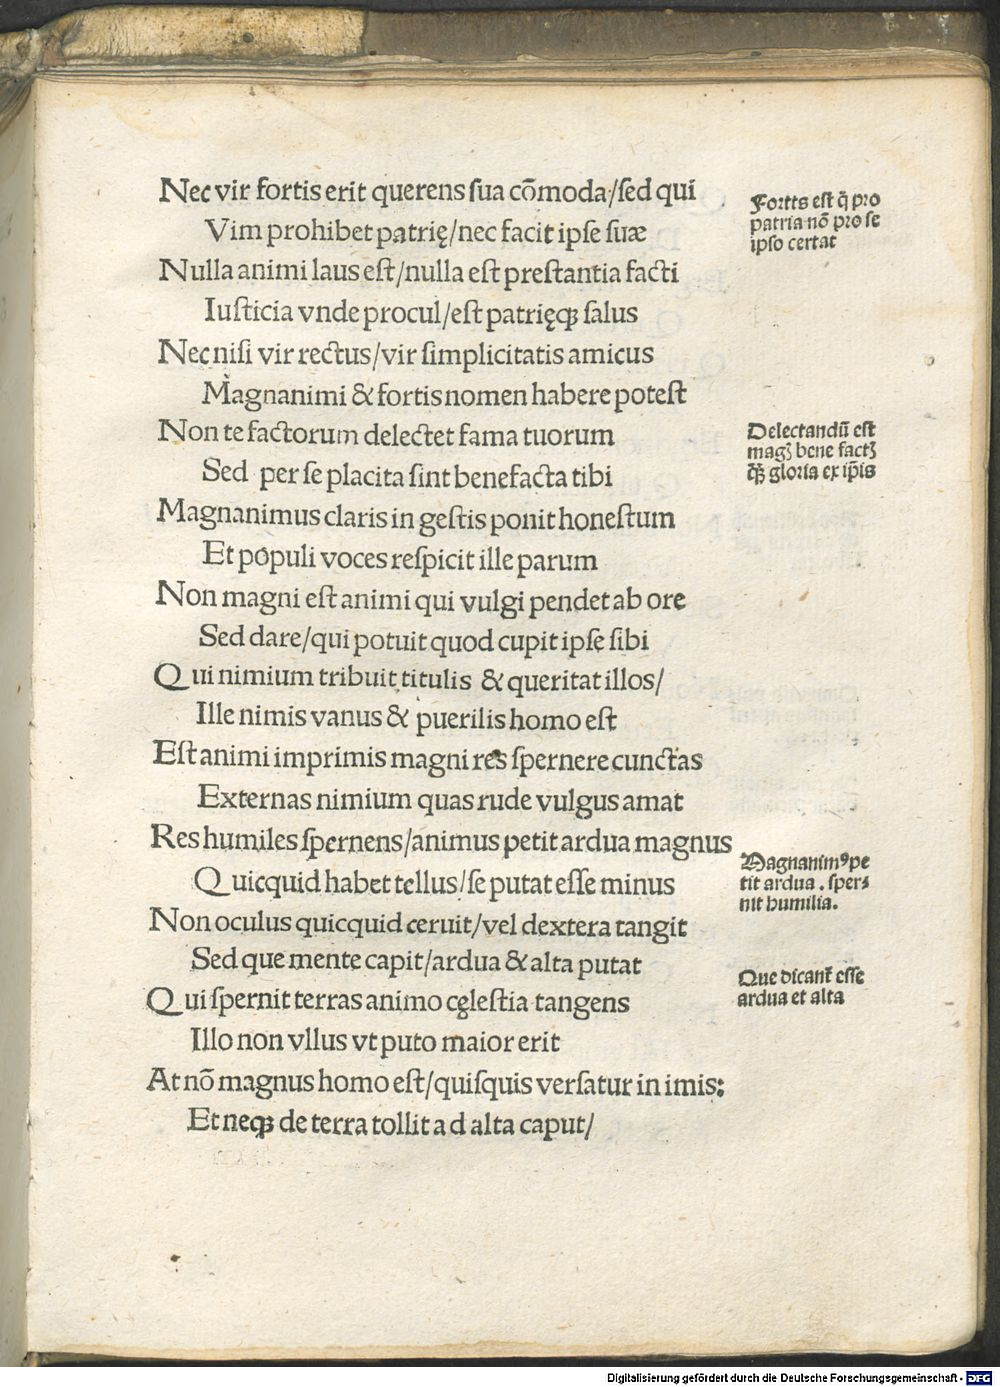 Nec vir fortis erit querens ſua cõmoda/ſed qui
Vim prohibet patrię/nec facit ipſe ſuæ
Nulla animi laus eſt/nulla eſt preſtantia facti
Iuſticia vnde procul/eſt patrięqꝫ ſalus
Nec niſi vir rectus/vir ſimplicitatis amicus
Magnanimi & fortis nomen habere poteſt
Non te factorum delectet fama tuorum
Sed per ſe placita ſint benefacta tibi
Magnanimus claris in geſtis ponit honeſtum
Et populi voces reſpicit ille parum
Non magni eſt animi qui vulgi pendet ab ore
Sed dare/qui potuit quod cupit ipſe ſibi
Qui nimium tribuit titulis & queritat illos/
Ille nimis vanus & puerilis homo eſt
Eſt animi imprimis magni res ſpernere cunctas
Externas nimium quas rude vulgus amat
Res humiles ſpernens/animus petit ardua magnus
Quicquid habet tellus/ſe putat eſſe minus
Non oculus quicquid ceruit/vel dextera tangit
Sed que mente capit/ardua & alta putat
Qui ſpernit terras animo cęleſtia tangens
Illo non vllus vt puto maior erit
At nõ magnus homo eſt/quiſquis verſatur in imis:
Et neqꝫ de terra tollit ad alta caput/
Fortis eſt q̃ pro
patria nõ pro ſe
ipſo certat
Delectandũ eſt
magꝫ bene factꝫ
qꝫ̃ gloria ex ip̃is
Magnanimꝰ pe
tit ardua . ſper⸗
nit humilia.
Que dicant̃ eſſe
ardua et alta
Digitalisierung gefördert durch die Deutsche Forschungsgemeinschaft - DFG